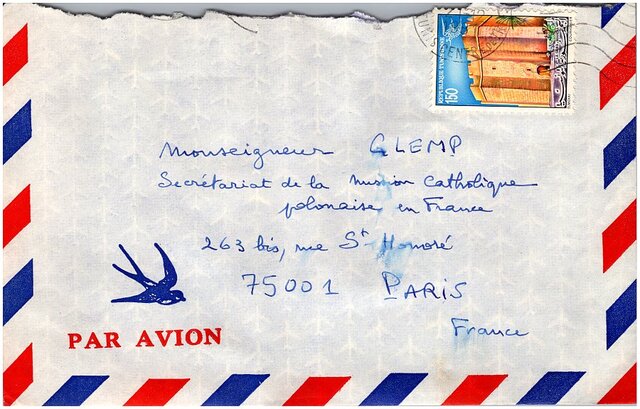 REPUBLIQUE TUNISIENNE
150
Monseigneur GLEMP
Secrétariat de la mission catholique
polonaise en France
263 bis, rue St Honoré
75001 PARIS
France
PAR AVION